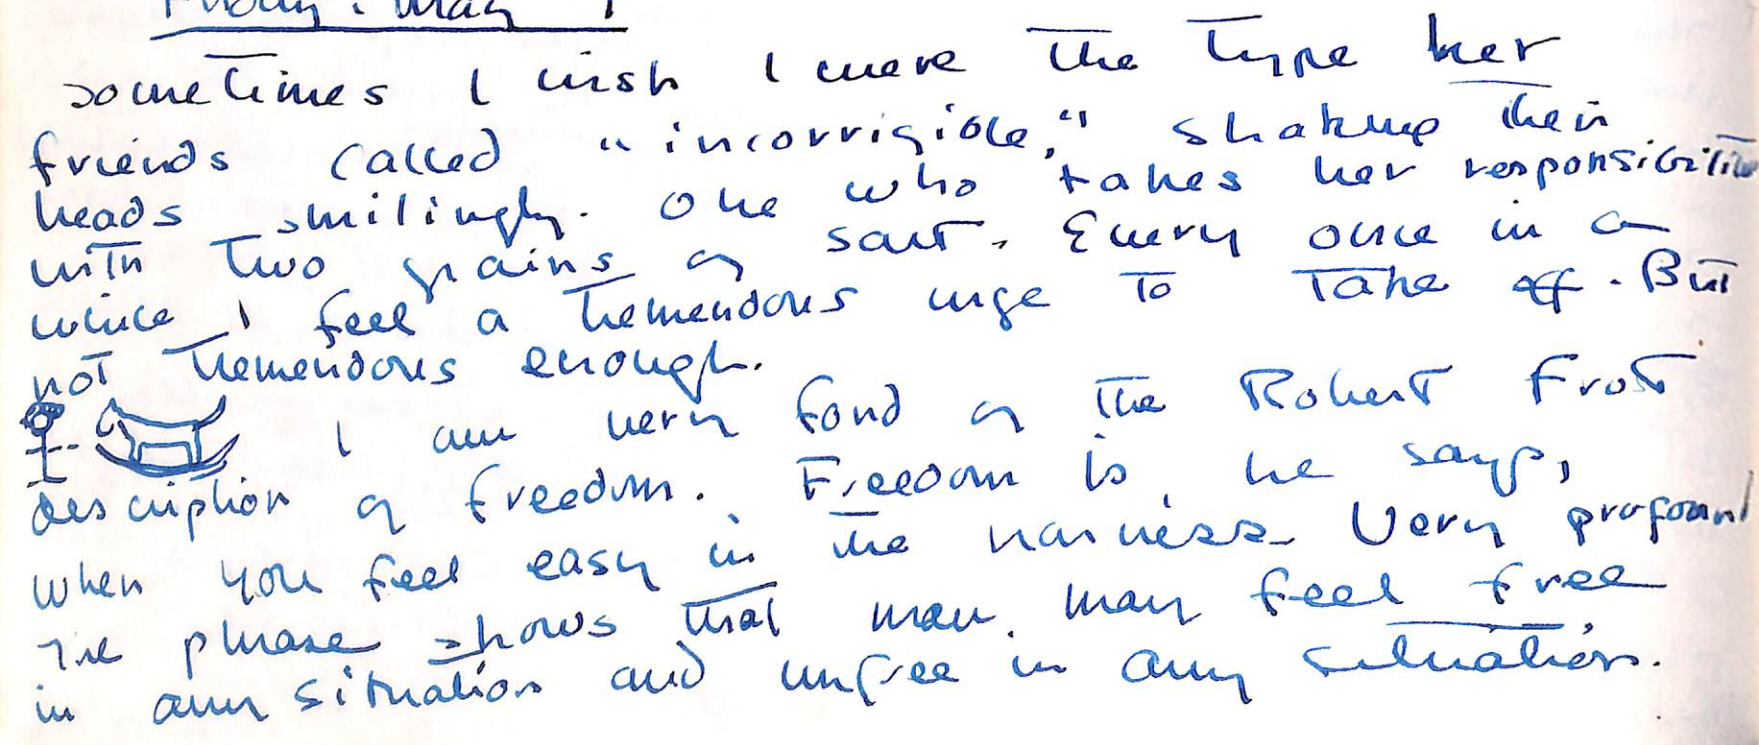 Friday, May 1
sometimes I wish I were the type her
friends called "incorrigible," shaking their
heads smilingly. One who takes her responsibilities
with two grains of salt. Every once in a
while I feel a tremendous urge to take off. But
not tremendous enough.
I am very fond of the Robert Frost
description of freedom. Freedom is, he says,
when you feel easy in the harness. Very profound
The phrase shows that man may feel free
in any situation and unfree in any situation.